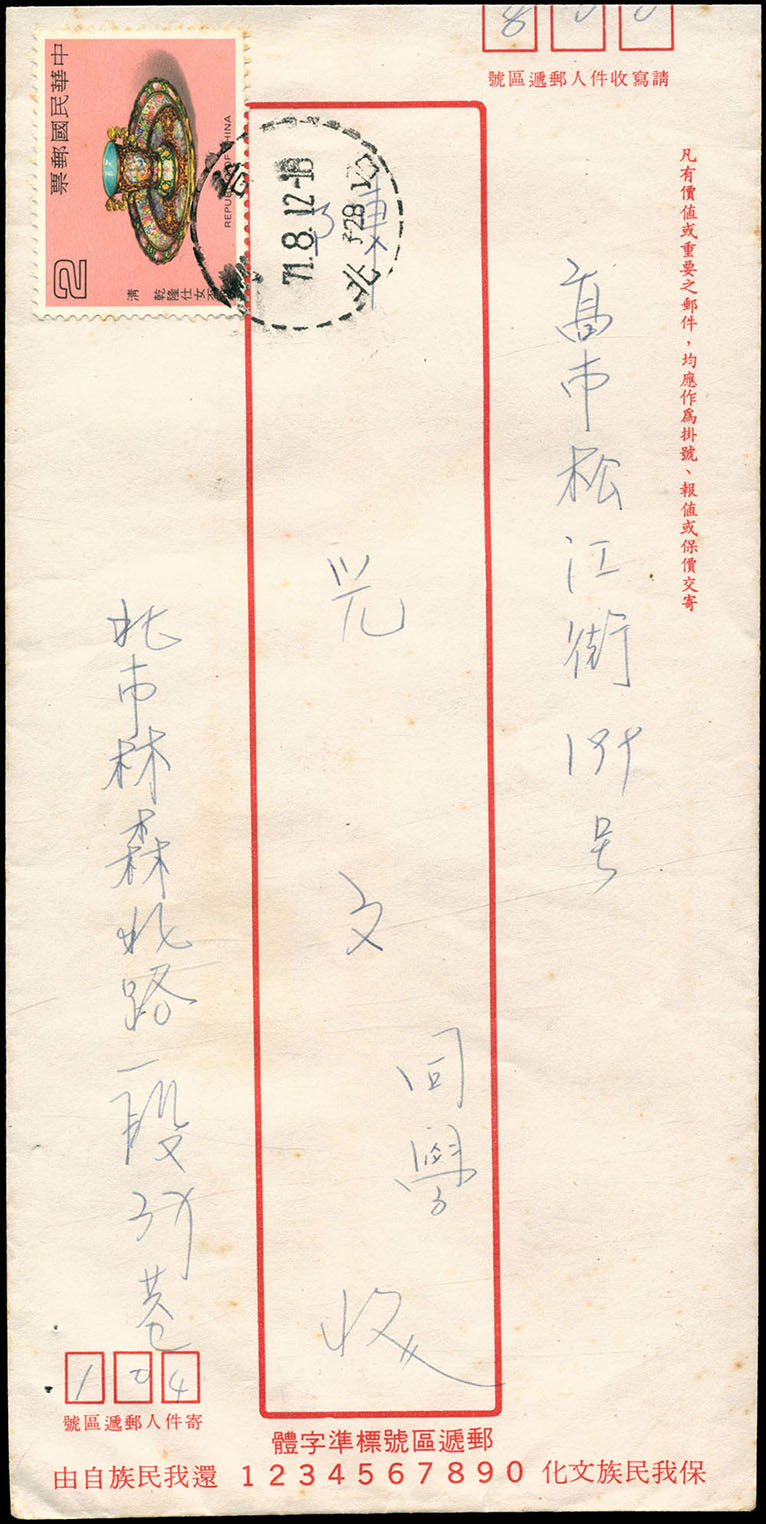 8 0 0
請寫收件人郵遞區號
凡有價值或重要之郵件，均應作為掛號、報值或保價交寄
高市松江街189号
陳
光文
同學
收
北市林森北路一段
巷
104
寄件人郵遞區號
中華民國郵票
REPUBLIC OF CHINA
2
清
乾隆仕女
71.8.12-18
北
郵遞區號標準字體
保我民族文化 1234567890 還我民族自由